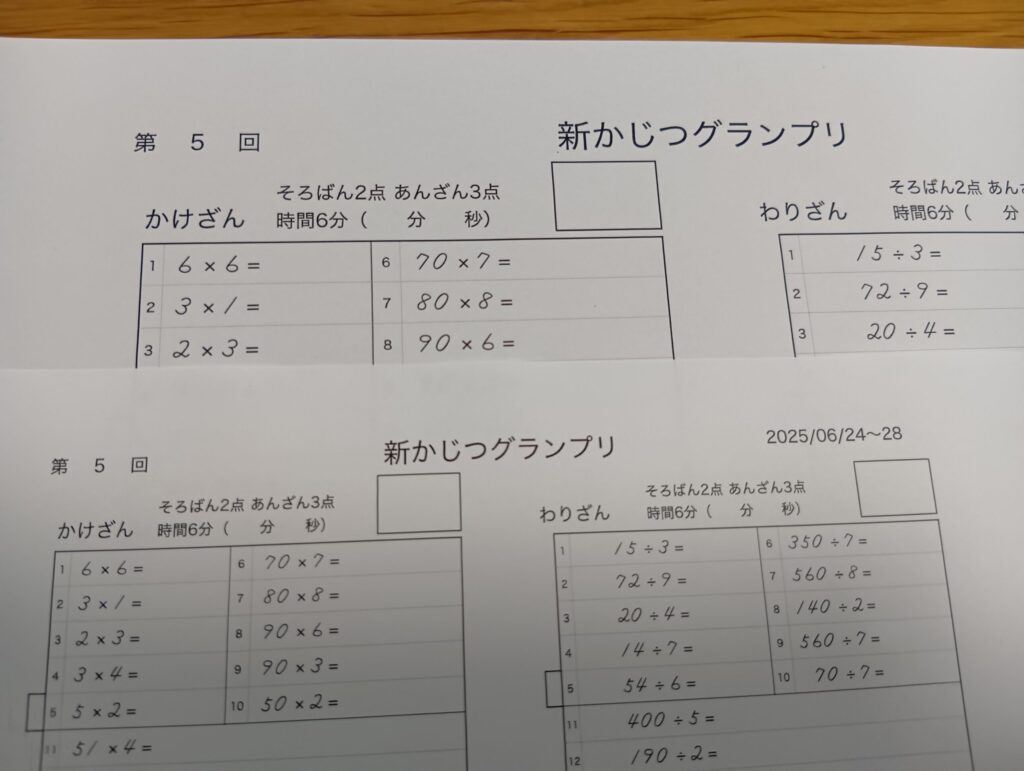 第 5 回 新かじつグランプリ
かけざん そろばん2点 あんざん3点
時間6分( 分 秒)
1 6 × 6 = 6 70 × 7 =
2 3 × 1 = 7 80 × 8 =
3 2 × 3 = 8 90 × 6 =
わりざん そろばん2点
時間6分( 分
1 15 ÷ 3 =
2 72 ÷ 9 =
3 20 ÷ 4 =
2025/06/24〜28
第 5 回 新かじつグランプリ
かけざん そろばん2点 あんざん3点
時間6分( 分 秒)
1 6 × 6 = 6 70 × 7 =
2 3 × 1 = 7 80 × 8 =
3 2 × 3 = 8 90 × 6 =
4 3 × 4 = 9 90 × 3 =
5 5 × 2 = 10 50 × 2 =
11 51 × 4 =
わりざん そろばん2点 あんざん3点
時間6分( 分 秒)
1 15 ÷ 3 = 6 350 ÷ 7 =
2 72 ÷ 9 = 7 560 ÷ 8 =
3 20 ÷ 4 = 8 140 ÷ 2 =
4 14 ÷ 7 = 9 560 ÷ 7 =
5 54 ÷ 6 = 10 70 ÷ 7 =
11 400 ÷ 5 =
12 190 ÷ 2 =